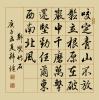 咬定青山不放
松立根原在破
岩中千磨萬擊
還堅勁任爾東
西南北風
鄭燮竹石
庚子孟夏